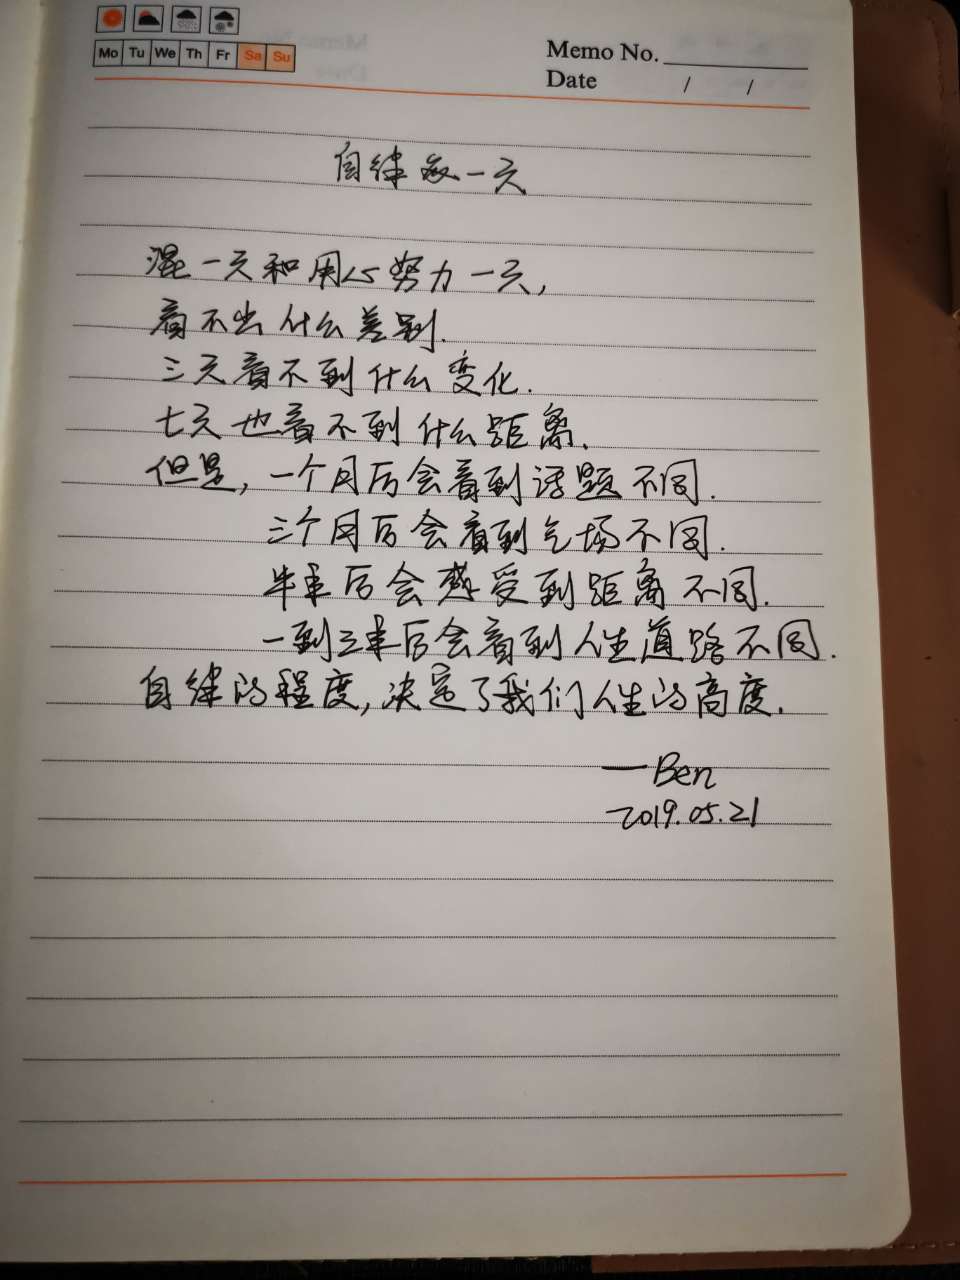 Mo Tu We Th Fr Sa Su
Memo No.
Date / /
自律每一天
混一天和用心努力一天,
看不出什么差别.
三天看不到什么变化.
七天也看不到什么距离.
但是,一个月后会看到话题不同.
三个月后会看到气场不同.
半年后会感受到距离不同.
一到三年后会看到人生道路不同.
自律的程度,决定了我们人生的高度.
—Ben
2019.05.21